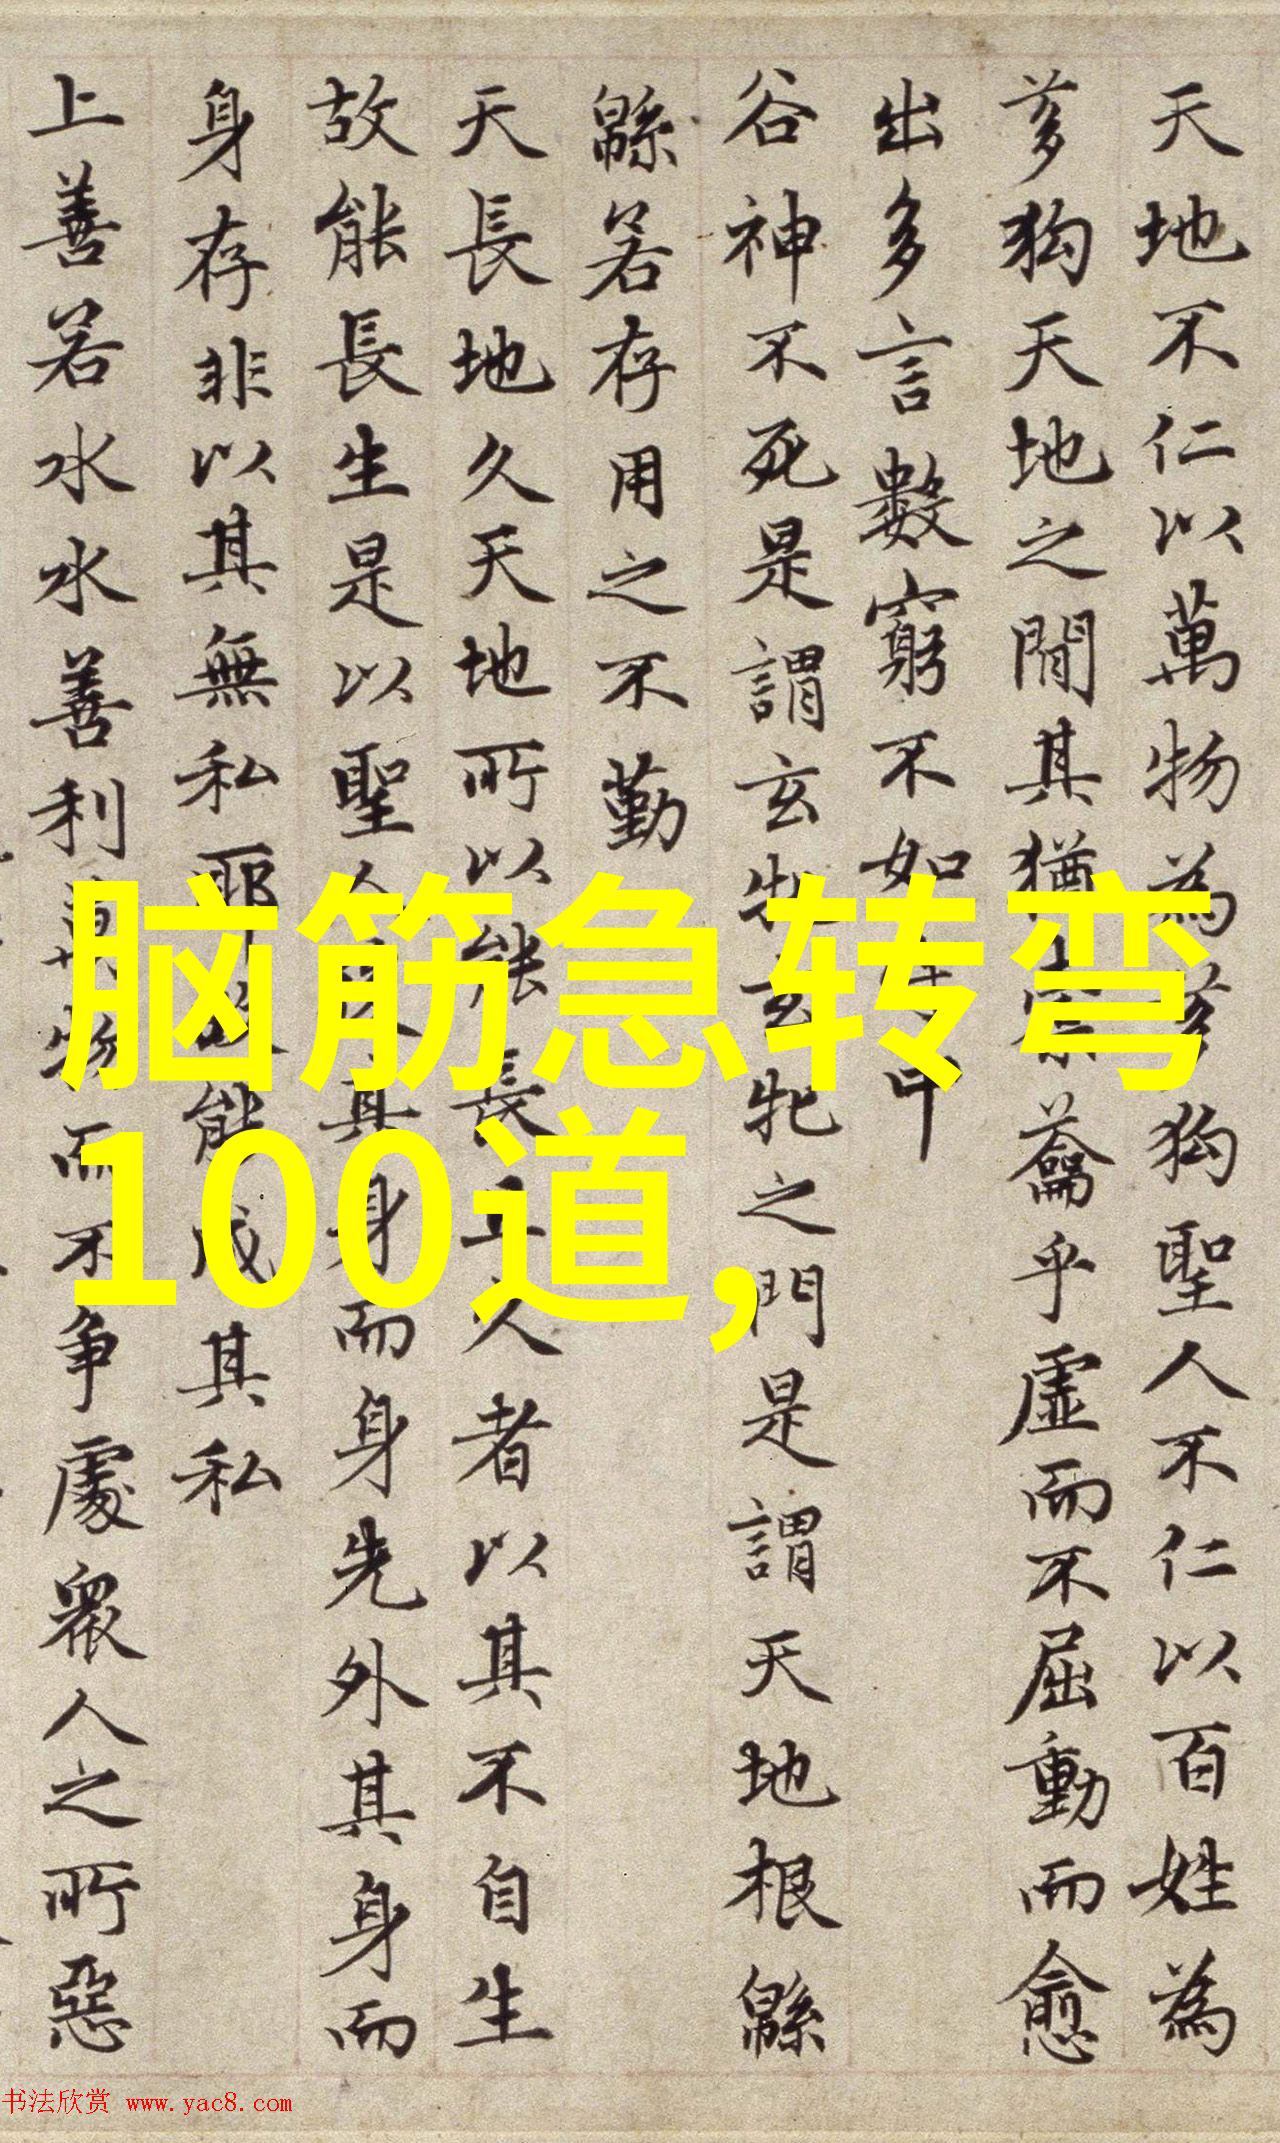 天地不仁以萬物為芻狗聖人不仁以百姓為
芻狗天地之間其猶橐籥乎虛而不屈動而愈
出多言數窮不如守中
谷神不死是謂玄牝玄牝之門是謂天地根緜
緜若存用之不勤
天長地久天地所以能長且久者以其不自生
故能長生是以聖人後其身而身先外其身而
身存非以其無私耶故能成其私
上善若水水善利萬物而不爭處衆人之所惡
脑筋急转弯
100道,
书法欣赏 www.yac8.com